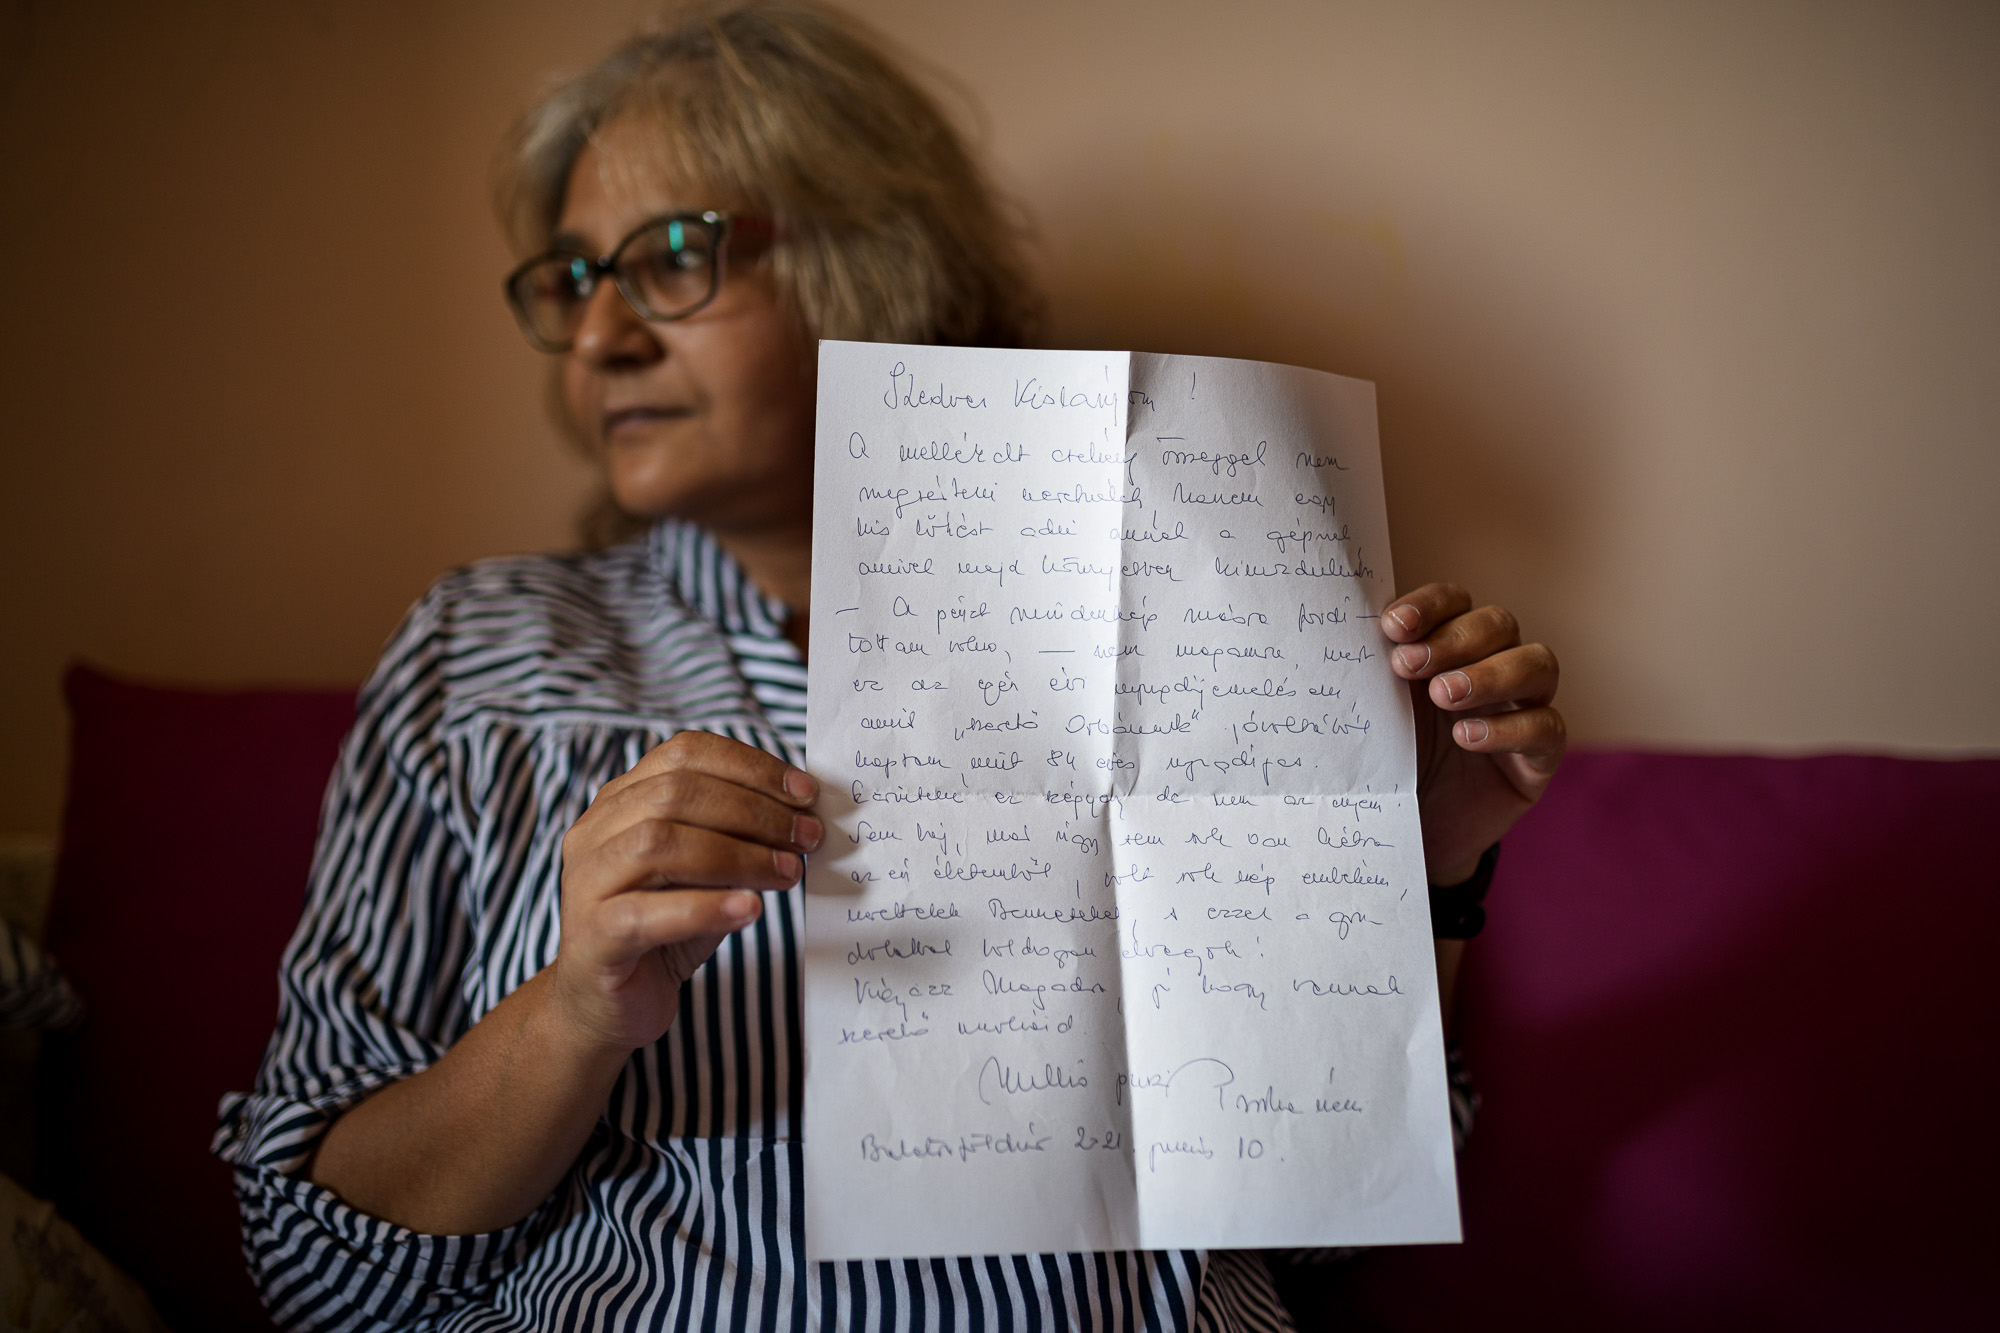 Kedves Kislányom!
A mellékelt csekély összeggel nem
megsérteni szeretnélek, hanem egy
kis lökést adni annak a gépnek
amivel majd könnyebben kimozdulnak.
— A pénzt mindenkép másra fordí-
tottam volna, — nem magamra, mert
ez az egész évi nyugdíjemelésem
amit „szerető Orbánunk" jóvoltából
kaptam, mint 84 éves nyugdíjas.
ez szégyen de nem az enyém!
Nem baj, már úgy sem sok van hátra
az én életemből, volt sok szép emlékem,
szerettelek Benneteket, s ezzel a gon-
dolattal boldogan elvagyok!
Vigyázz Magadra, jó hogy vannak
szerető unokáid.
Millió puszi Piroska néni
Balatonföldvár 2021. június 10.